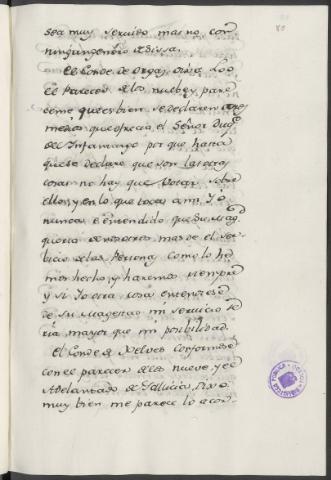 sea muy servido mas no con
ningun genero de sissa.
El Conde de Orgaz, dixo Loo
el parecer de los nuebe, y pare
ceme que es bien se declaren los
medios que ofrecia el Señor Duqe
del Infantazgo por que hasta
que se declare que son las otras
cosas no hay que votar sobre
ellos, y en lo que toca a mi Yo
nunca e entendido que Su Mag
queria de nosotros mas de el ser
bicio de las Persona, como lo he
mos hecho, y haremos siempre
y si Yo otra cosa entendiese
de Su Magestad mi servicio se
ria mayor que mi posibilidad.
El Conde de Xelves conformose
con el parecer de los nueve, y el
Adelantado de Galicia, dixo
muy bien me parece lo acor-
80